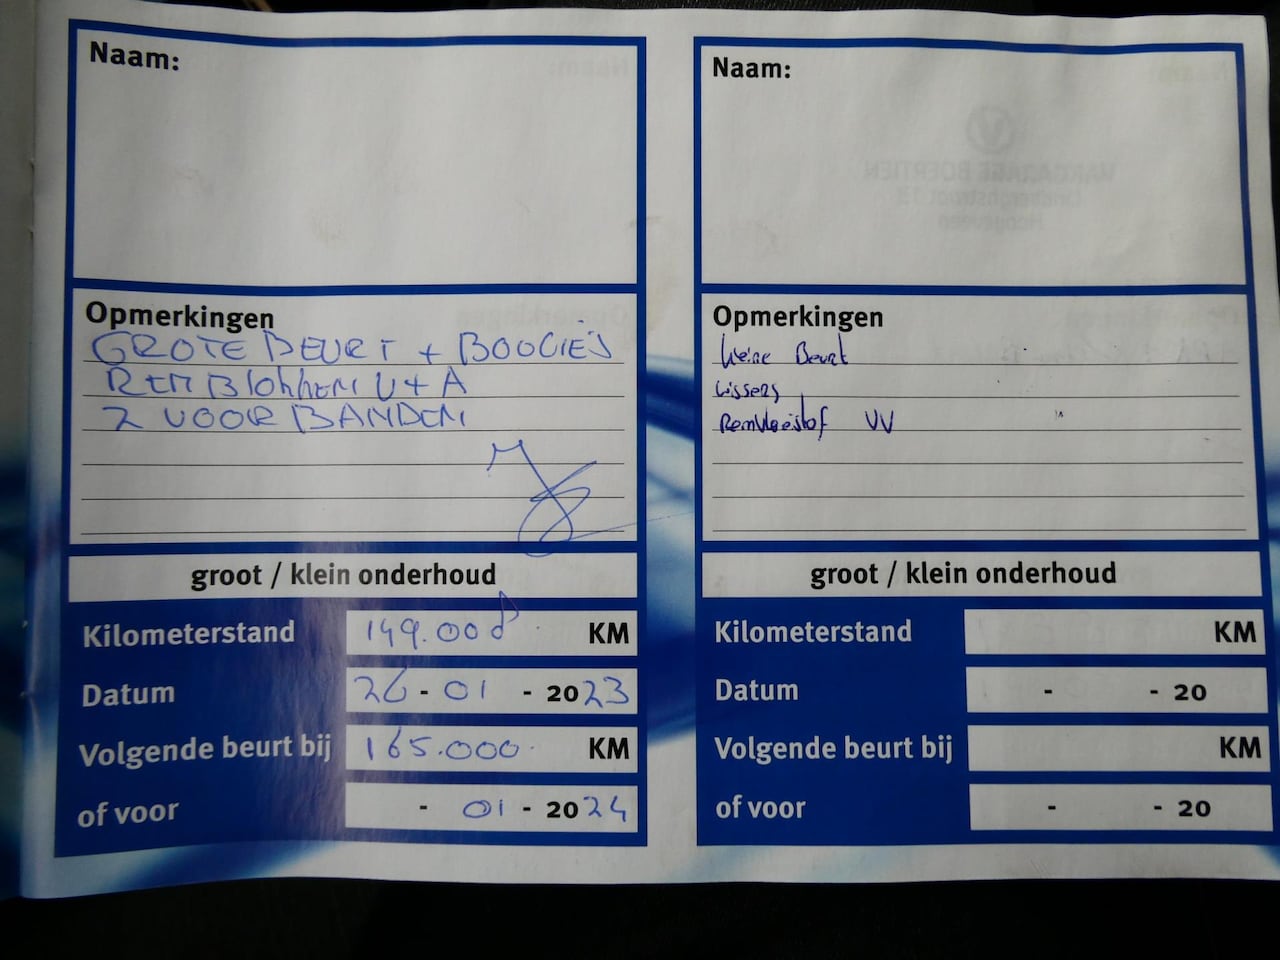 Naam:
Opmerkingen
GROTE BEURT + BOOGIES
REMBlokkEN V + A
2 VOOR BANDEN
groot / klein onderhoud
Kilometerstand 149.000 KM
Datum 26 - 01 - 2023
Volgende beurt bij 165.000 KM
of voor - 01 - 2024
Naam:
VAKGARAGE BOERTIEN
Hoogeveen
Opmerkingen
kleine Beurt
wissers
Remvloeistof VV
groot / klein onderhoud
Kilometerstand KM
Datum - - 20
Volgende beurt bij KM
of voor - - 20